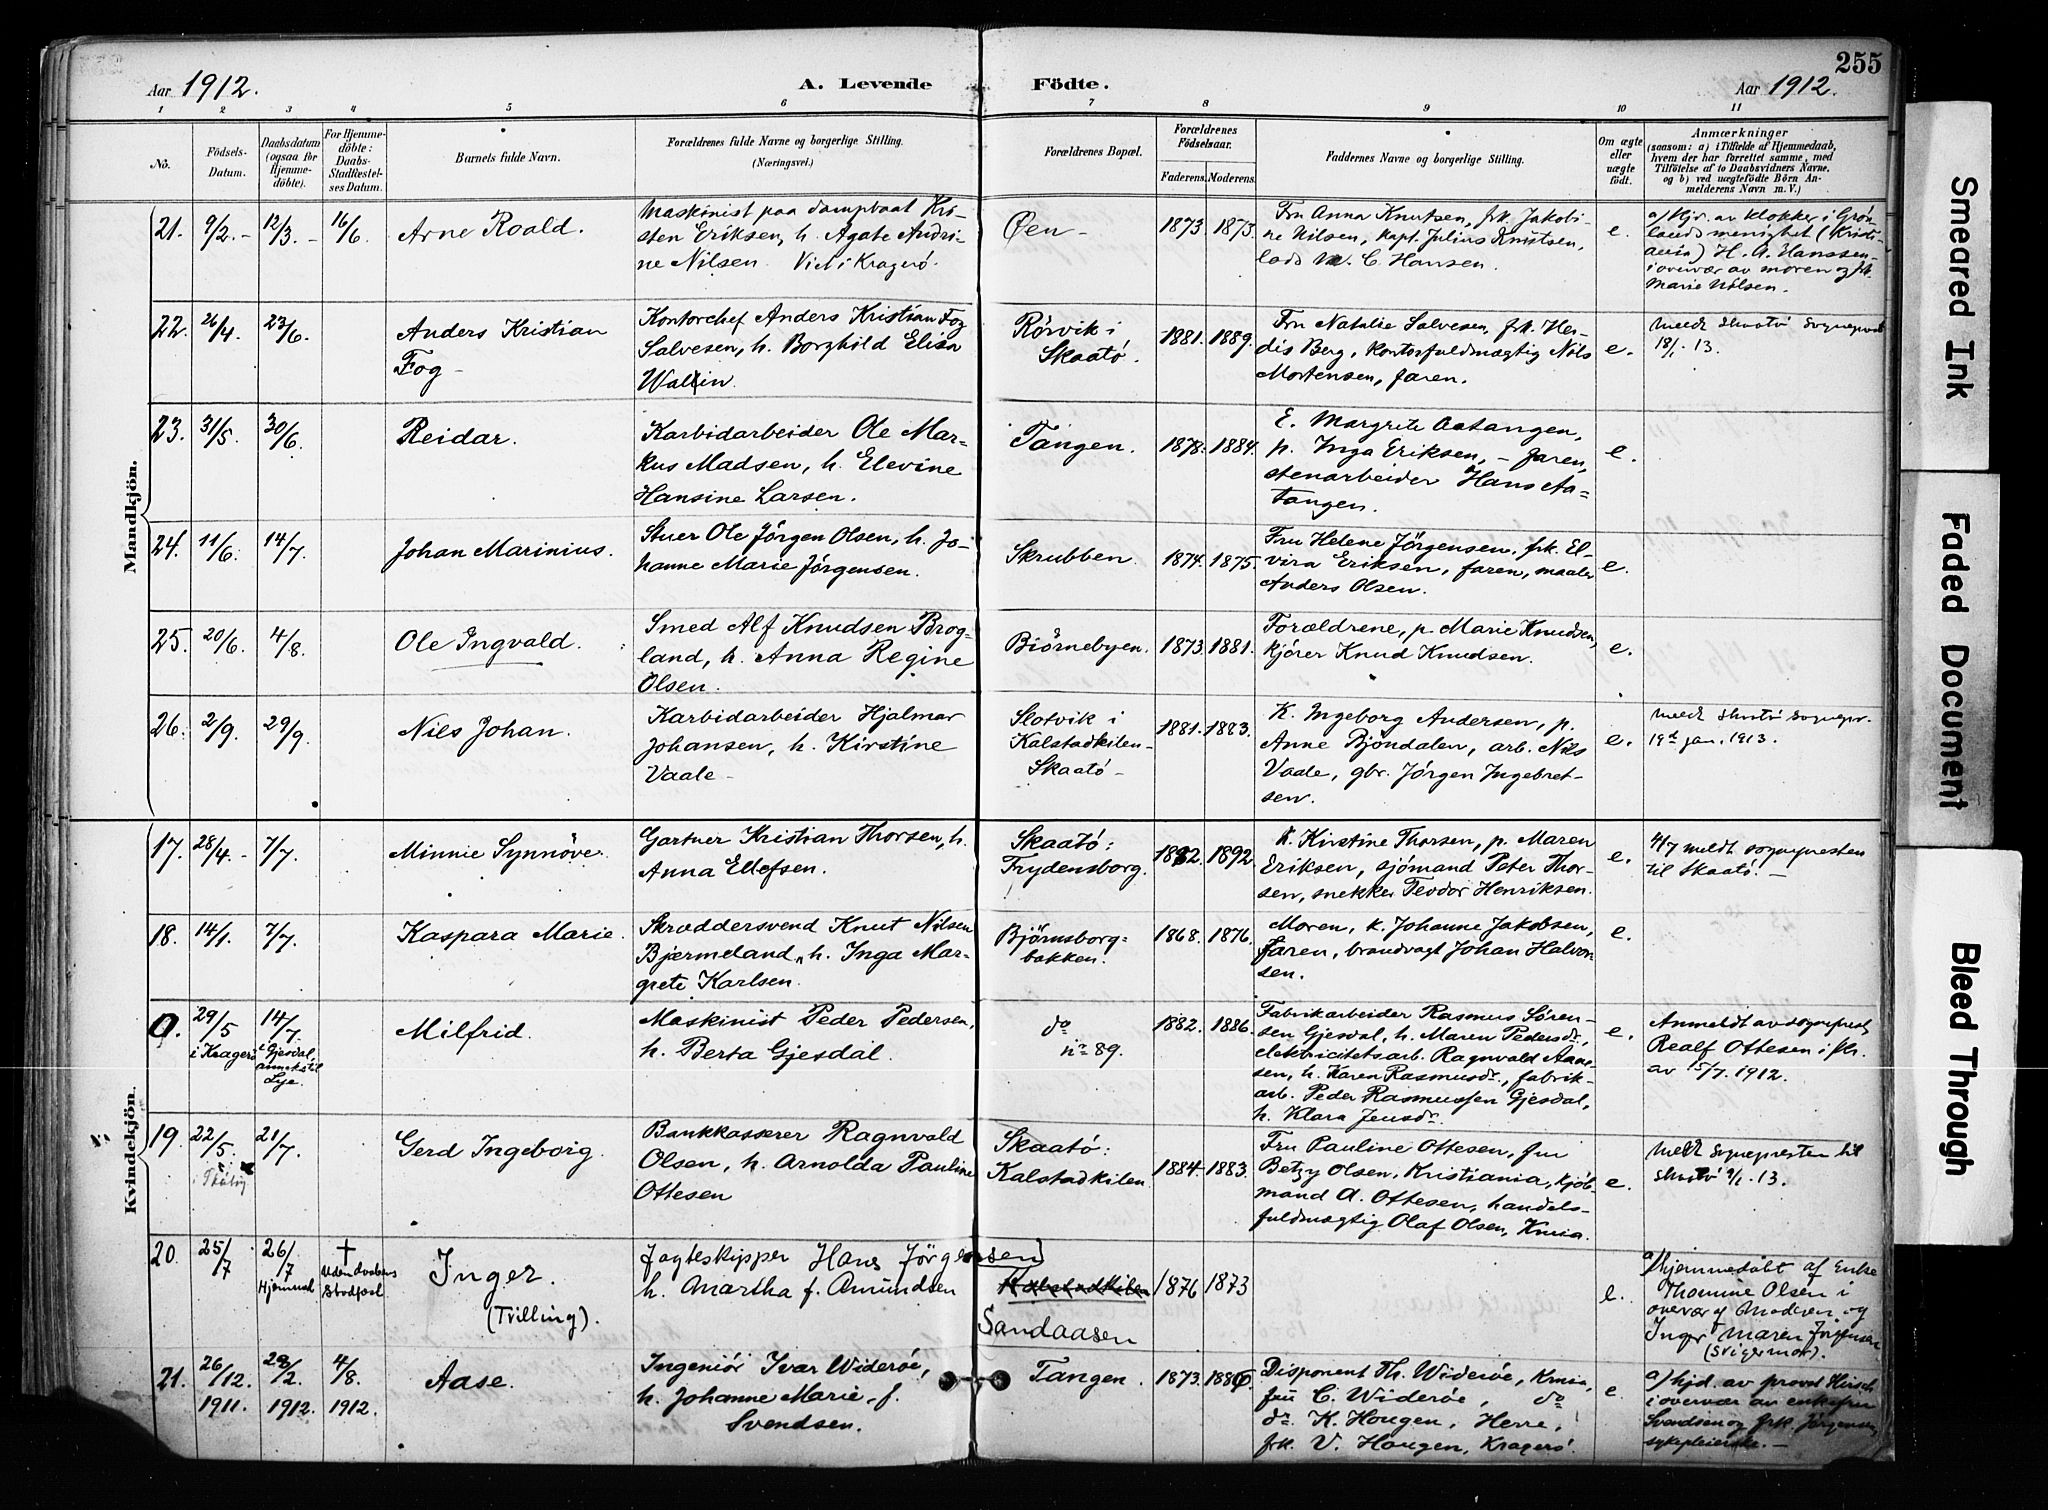 255
Aar 1912. A. Levende Födte. Aar 1912.
1 2 3 4 5 6 7 8 9 10 11
No. Födsels-Datum. Daabsdatum (ogsaa for Hjemmedöbte). For Hjemmedöbte: Daabs-Stadfæstelses Datum. Barnets fulde Navn. Forældrenes fulde Navne og borgerlige Stilling. (Næringsvei.) Forældrenes Bopæl. Forældrenes Födselsaar. Faderens. Moderens. Faddernes Navne og borgerlige Stilling. Om ægte eller uægte födt. Anmærkninger (saasom: a) i Tilfælde af Hjemmedaab, hvem der har forrettet samme, med Tilföielse af to Daabsvidners Navne, og b) ved uægtefödte Börn Anmelderens Navn m. V.)
Mandkjön.
21. 9/2. - 12/3. - 16/6. Arne Roald.
Maskinist paa dampbaat Kri-
sten Eriksen, h. Agate Andri-
ne Nilsen. Viet i Kragerö.
Øen - 1873. 1873.
Fru Anna Knutsen, frk. Jakobi-
ne Nilsen, kapt. Julius Knutsen,
lods M. C. Hansen.
e.
a/ Hjd. av klokker i Grön-
lands menighet (Kristi-
ania) H. A. Hanssen -
i overvær av moren og frk.
Marie Nilsen.
22. 26/4. 23/6. Anders Kristian
Fog -
Kontorchef Anders Kristian Fog
Salvesen, h. Borghild Elisa
Wallin.
Rörvik i
Skaatö.
1881. 1889.
Fru Natalie Salvesen, frk. Her-
dis Berg, kontorfuldmægtig Nils
Mortensen, faren.
e.
Meldt Skaatö Sognepræst
18/1. 13.
23. 31/5. 30/6. Reidar.
Karbidarbeider Ole Mar-
kus Madsen, h. Elevine
Hansine Larsen.
Tangen. 1878. 1884.
E. Margrete Aatangen,
p. Inga Eriksen, - faren,
stenarbeider Hans Aa-
tangen.
e.
24. 11/6. 14/7. Johan Marinius.
Stuer Ole Jörgen Olsen, h. Jo-
hanne Marie Jörgensen.
Skrubben. 1874. 1875.
Fru Helene Jörgensen, frk. El-
vira Eriksen, faren, maaler
Anders Olsen.
e.
25. 20/6. 4/8. Ole Ingvald.
Smed Alf Knudsen Brog-
land, h. Anna Regine
Olsen.
Biörnebyen. 1873. 1881.
Forældrene, p. Marie Knudsen,
kjörer Knud Knudsen.
e.
26. 2/9. 29/9. Nils Johan.
Karbidarbeider Hjalmar
Johansen, h. Kirstine
Vaale -
Slotvik i
Kalstadkilen -
Skaatö -
1881. 1883.
K. Ingeborg Andersen, p.
Anne Bjöndalen, arb. Nils
Vaale, gbr. Jörgen Ingebret-
sen.
e.
Meldt Skaatö Sognepr.
19d jan. 1913.
Kvindekjön.
17. 28/4. - 7/7. Minnie Synnöve.
Gartner Kristian Thorsen, h.
Anna Ellefsen.
Skaatö:
Frydensborg.
1882. 1892.
K. Kirstine Thorsen, p. Maren
Eriksen, sjömand Peter Thor-
sen, snekker Teodor Henriksen.
e.
4/7 meldt sognepresten
til Skaatö. -
18. 14/1. 7/7. Kaspara Marie.
Skræddersvend Knut Nilsen
Bjermeland, h. Inga Mar-
grete Karlsen.
Björnsborg-
bakken.
1868. 1876.
Moren, k. Johanne Jakobsen,
faren, brandvagt Johan Halvor-
sen.
e.
0. 29/5 i Kragerö 14/7 i Gjesdal, annekstil Lye. Milfrid.
Maskinist Peder Pedersen,
h. Berta Gjesdal.
do
nr 89.
1882. 1886.
Fabrikarbeider Rasmus Sören-
sen Gjesdal, h. Maren Pedersdr.,
elektricitetsarb. Ragnvald Aane-
sen, h. Karen Rasmusdr., fabrik-
arb. Peder Rasmussen Gjesdal,
h. Klara Jensdr.
e.
Anmeldt av sogneprest
Realf Ottesen i skr.
av 15/7. 1912.
19. 22/5. 21/7. Gerd Ingeborg.
Bankkasserer Ragnvald
Olsen, h. Arnolda Pauline
Ottesen
Skaatö:
Kalstadkilen.
1884. 1883.
Fru Pauline Ottesen, fru
Betzy Olsen, Kristiania, kjöb-
mand A. Ottesen, handels-
fuldmægtig Olaf Olsen, Krnia.
e.
Meldt Sognepresten til
Skaatö 9/1. 13.
20. 25/7 26/7 Hjemmed † Uden Daabens Stadfæst. Inger.
(Tvilling).
Jagteskipper Hans Jörgensen
h. Martha f. Amundsen
Kalstadkilen
Sandaasen
1876 1873
e.
a/ Hjemmedöbt af Enke
Thomine Olsen i
overvær af Moderen og
Inger Maren Jörgensen
(Svigermor).
21. 26/12. 1911. 28/2. 1912. 4/8. 1912. Aase.
Ingeniör Ivar Wideröe,
h. Johanne Marie f.
Svendsen.
Tangen. 1873. 1880.
Disponent Th. Wideröe, Krnia,
fru C. Wideröe, do
dr. K. Hougen, Herre,
frk. V. Hougen, Kragerö.
e.
a/ hjd. av provst Hirsch
i overvær av enkefru
Svendsen og frk. Jörgensen,
sykepleierske. -
Smeared Ink
Faded Document
Bleed Through